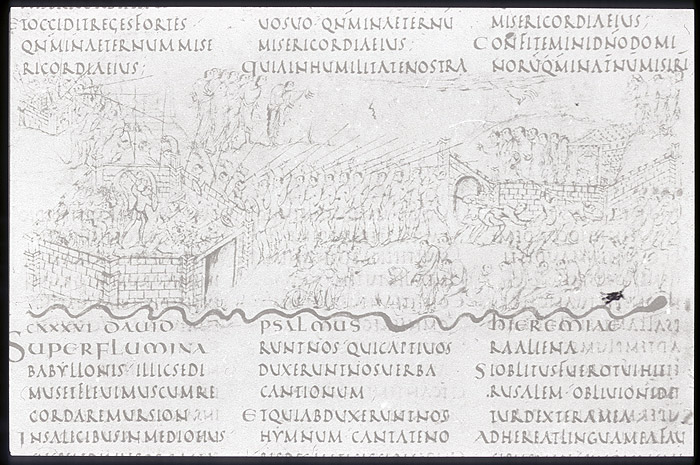 TOCCIDITREGESFORTES
QNMINAETERNUMMISE
RICORDIAEIUS;
UOSUO QNMINAETERNU
MISERICORDIAEIUS;
QUIAINHUMILITATENOSTRA
MISERICORDIAEIUS;
CONFITEMINIDNODOMI
CXXXVI DAVID
SUPERFLUMINA
BABYLLONIS ILLICSEDI
MUSETFLEUIMUSCUMRE
CORDAREMURSION
INSALICIBUSINMEDIOEIUS
PSALMUS
RUNTNOS QUICAPTIUOS
DUXERUNTNOSUERBA
CANTIONUM
ETQUIABDUXERUNTNOS
HYMNUM CANTATENO
HIEREMIAE
RAALIENA
SIOBLITUSFUEROTUIHIE
RUSALEM OBLIUIONIDE
TURDEXTERAMEA
ADHEREATLINGUAMEAFAU